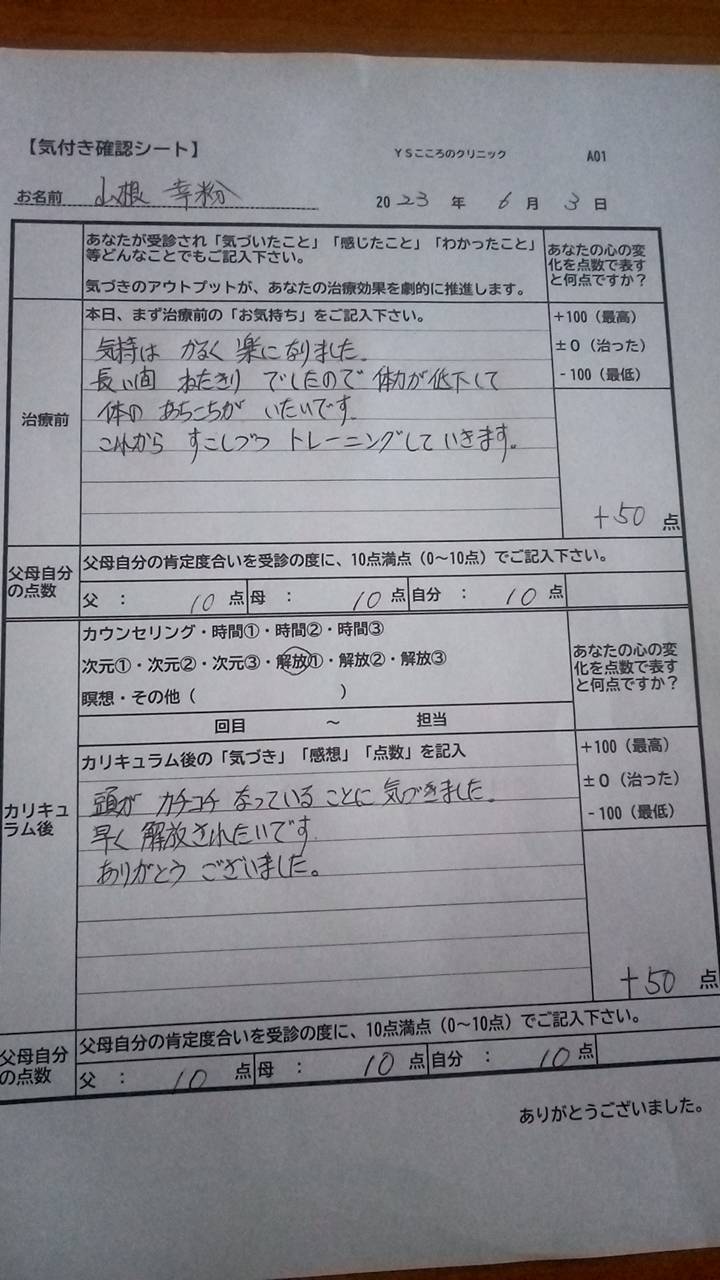 【気付き確認シート】 YSこころのクリニック A01
お名前 山根 幸粉 2023年 6月 3日
あなたが受診され「気づいたこと」「感じたこと」「わかったこと」
等どんなことでもご記入下さい。
気づきのアウトプットが、あなたの治療効果を劇的に推進します。
あなたの心の変
化を点数で表す
と何点ですか？
治療前
本日、まず治療前の「お気持ち」をご記入下さい。
気持は かるく 楽になりました。
長い間 ねたきり でしたので 体力が低下して
体の あちこちが いたいです。
これから すこしづつ トレーニングして いきます。
+100（最高）
±0（治った）
-100（最低）
+50 点
父母自分
の点数
父母自分の肯定度合いを受診の度に、10点満点（0～10点）でご記入下さい。
父 ： 10 点 母 ： 10 点 自分 ： 10 点
カウンセリング・時間①・時間②・時間③
次元①・次元②・次元③・解放①・解放②・解放③
瞑想・その他（ ）
回目 ～ 担当
あなたの心の変
化を点数で表す
と何点ですか？
カリキュ
ラム後
カリキュラム後の「気づき」「感想」「点数」を記入
頭が カチコチ なっている ことに 気づきました。
早く 解放されたいです
ありがとう ございました。
+100（最高）
±0（治った）
-100（最低）
+50 点
父母自分
の点数
父母自分の肯定度合いを受診の度に、10点満点（0～10点）でご記入下さい。
父 ： 10 点 母 ： 10 点 自分 ： 10 点
ありがとうございました。